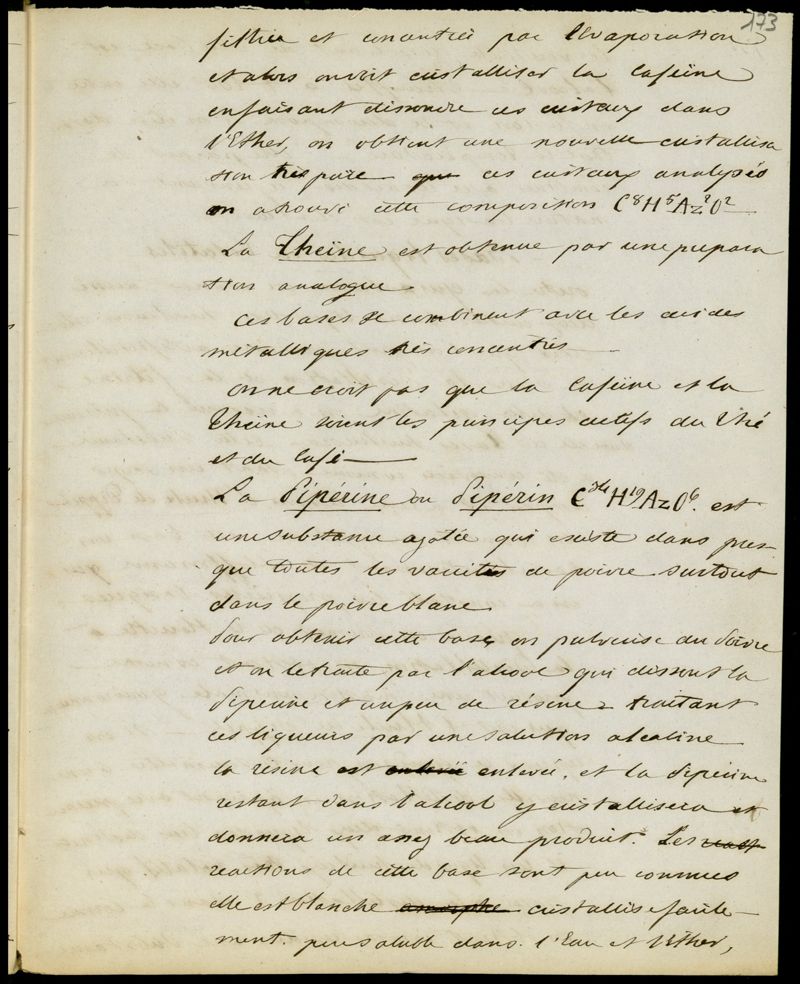 173
filtrée et concentrée par l'Evaporation
et alors on voit cristalliser la Caféine
en faisant dissoudre ces cristaux dans
l'Ether, on obtient une nouvelle cristallisa
tion très pure ces cristaux analysés
on a trouvé cette composition C⁸H⁵Az²O²
La Théïne est obtenue par une prépara
tion analogue.
Ces bases se combinent avec les acides
métalliques très concentrés
On ne croit pas que la Caféine et la
Théine soient les principes actifs du Thé
et du Café
La Pipérine ou Pipérin C³⁴H¹⁹AzO⁶. est
une substance azotée qui existe dans pres
que toutes les variétés de poivre surtout
dans le poivre blanc
Pour obtenir cette base, on pulvérise du Poivre
et on le traite par l'alcool qui dissout la
Pipérine et un peu de résine traitant
ces liqueurs par une solution alcaline
la résine est enlevée, et la Pipérine
restant dans l'alcool y cristallisera et
donnera un assez beau produit. Les
reactions de cette base sont peu connues
elle est blanche amorphe cristallise facile
ment. peu soluble dans l'Eau et l'Ether,